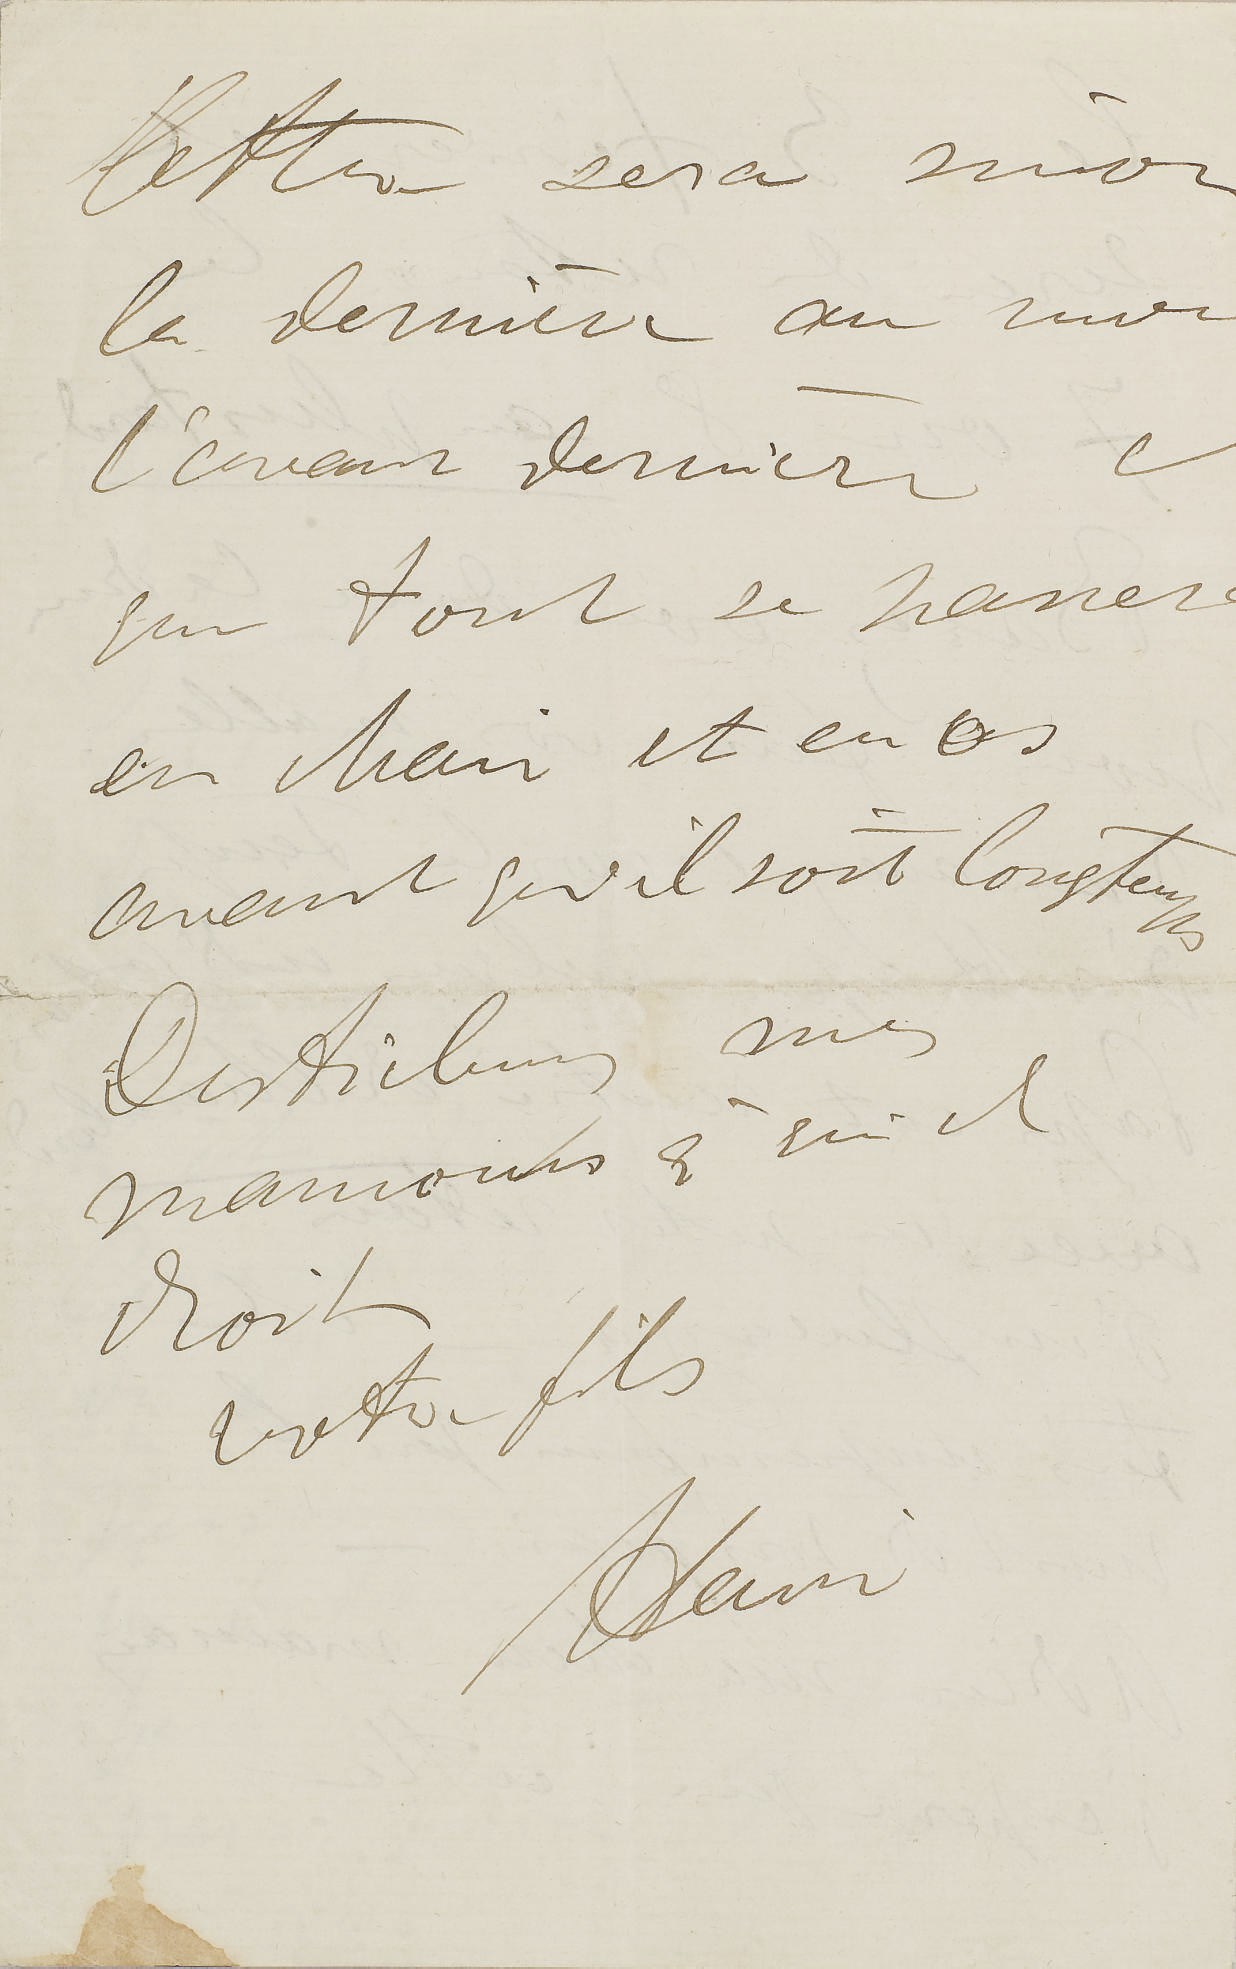 lettre sera sinon
la dernière au moins
l'avant dernière et
que tout se passera
en chair et en os
avant qu'il soit longtemps
Distribuez mes
mamours à qui de
droit
votre fils
Henri